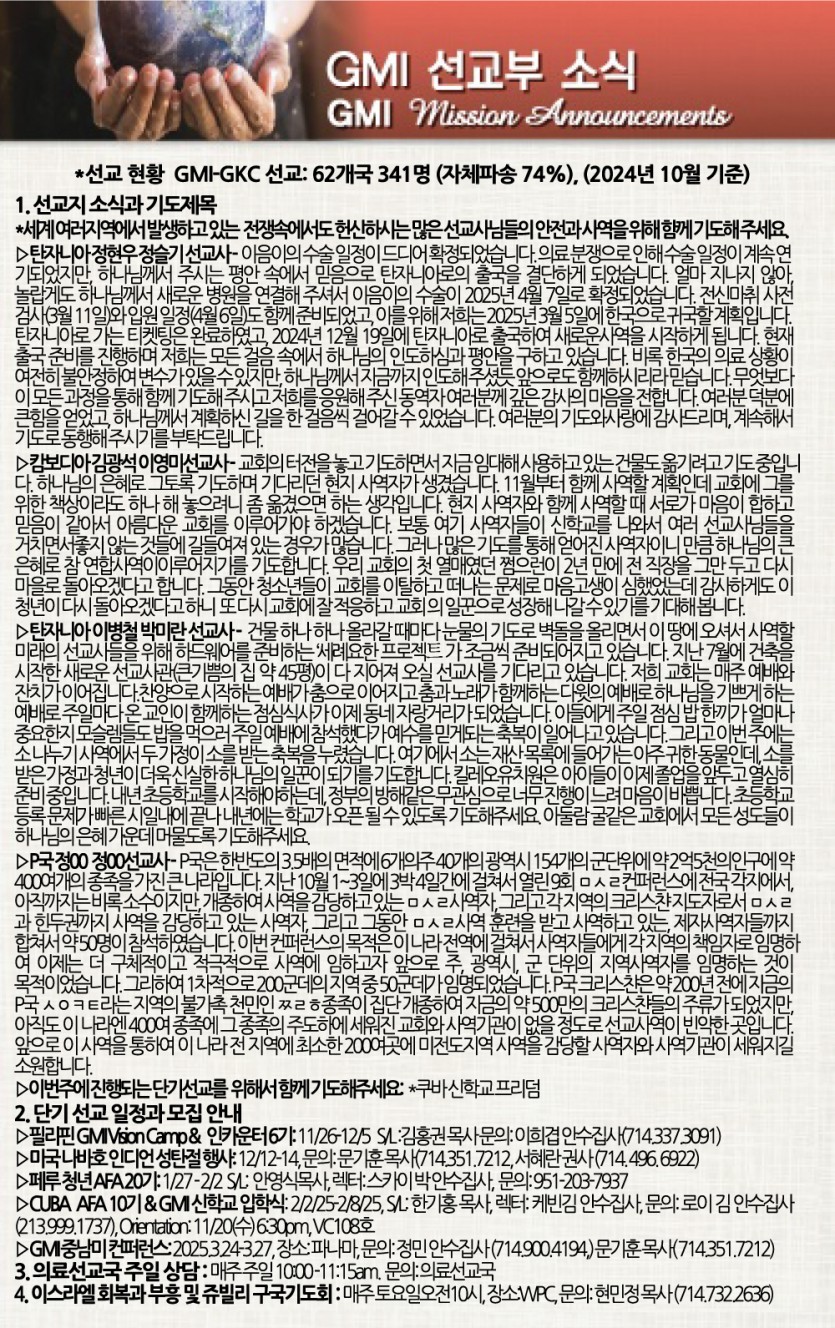 GMI 선교부 소식
GMI Mission Announcements
*선교 현황 GMI-GKC 선교: 62개국 341명 (자체파송 74%), (2024년 10월 기준)
1. 선교지 소식과 기도제목
*세계 여러지역에서 발생하고 있는 전쟁속에서도 헌신하시는 많은 선교사님들의 안전과 사역을 위해 함께 기도해 주세요.
▷탄자니아 정현우 정슬기 선교사 - 이음이의 수술 일정이 드디어 확정되었습니다. 의료 분쟁으로 인해 수술 일정이 계속 연
기되었지만, 하나님께서 주시는 평안 속에서 믿음으로 탄자니아로의 출국을 결단하게 되었습니다. 얼마 지나지 않아,
놀랍게도 하나님께서 새로운 병원을 연결해 주셔서 이음이의 수술이 2025년 4월 7일로 확정되었습니다. 전신마취 사전
검사(3월 11일)와 입원 일정(4월 6일)도 함께 준비되었고, 이를 위해 저희는 2025년 3월 5일에 한국으로 귀국할 계획입니다.
탄자니아로 가는 티켓팅은 완료하였고, 2024년 12월 19일에 탄자니아로 출국하여 새로운사역을 시작하게 됩니다. 현재
출국 준비를 진행하며 저희는 모든 걸음 속에서 하나님의 인도하심과 평안을 구하고 있습니다. 비록 한국의 의료 상황이
여전히 불안정하여 변수가 있을 수 있지만, 하나님께서 지금까지 인도해 주셨듯 앞으로도 함께하시리라 믿습니다. 무엇보다
이 모든 과정을 통해 함께 기도해 주시고 저희를 응원해 주신 동역자 여러분께 깊은 감사의 마음을 전합니다. 여러분 덕분에
큰힘을 얻었고, 하나님께서 계획하신 길을 한 걸음씩 걸어갈 수 있었습니다. 여러분의 기도와사랑에 감사드리며, 계속해서
기도로 동행해 주시기를 부탁드립니다.
▷캄보디아 김광석 이영미선교사 - 교회의 터전을 놓고 기도하면서 지금 임대해 사용하고 있는 건물도 옮기려고 기도 중입니
다. 하나님의 은혜로 그토록 기도하며 기다리던 현지 사역자가 생겼습니다. 11월부터 함께 사역할 계획인데 교회에 그를
위한 책상이라도 하나 해 놓으려니 좀 옮겼으면 하는 생각입니다. 현지 사역자와 함께 사역할 때 서로가 마음이 합하고
믿음이 같아서 아름다운 교회를 이루어가야 하겠습니다. 보통 여기 사역자들이 신학교를 나와서 여러 선교사님들을
거치면서좋지 않는 것들에 길들여져 있는 경우가 많습니다. 그러나 많은 기도를 통해 얻어진 사역자이니 만큼 하나님의 큰
은혜로 참 연합사역이이루어지기를 기도합니다. 우리 교회의 첫 열매였던 쩜으런이 2년 만에 전 직장을 그만 두고 다시
마을로 돌아오겠다고 합니다. 그동안 청소년들이 교회를 이탈하고 떠나는 문제로 마음고생이 심했었는데 감사하게도 이
청년이 다시 돌아오겠다고 하니 또 다시 교회에 잘 적응하고 교회의 일꾼으로 성장해 나갈 수 있기를 기대해 봅니다.
▷탄자니아 이병철 박미란 선교사 - 건물 하나 하나 올라갈 때마다 눈물의 기도로 벽돌을 올리면서 이 땅에 오셔서 사역할
미래의 선교사들을 위해 하드웨어를 준비하는 '세례요한 프로젝트'가 조금씩 준비되어지고 있습니다. 지난 7월에 건축을
시작한 새로운 선교사관(큰기쁨의 집 약 45평)이 다 지어져 오실 선교사를 기다리고 있습니다. 저희 교회는 매주 예배와
잔치가 이어집니다.찬양으로 시작하는예배가 춤으로 이어지고 춤과 노래가 함께하는 다윗의 예배로 하나님을 기쁘게 하는
예배로 주일마다 온 교인이 함께하는 점심식사가 이제 동네 자랑거리가 되었습니다. 이들에게 주일 점심 밥 한끼가 얼마나
중요한지 모슬렘들도 밥을 먹으러 주일 예배에 참석했다가 예수를 믿게되는 축복이 일어나고 있습니다. 그리고 이번 주에는
소 나누기 사역에서 두 가정이 소를 받는 축복을 누렸습니다. 여기에서 소는 재산 목록에 들어가는 아주 귀한 동물인데, 소를
받은 가정과 청년이 더욱 신실한 하나님의 일꾼이 되기를 기도합니다. 킬레오유치원은 아아들이 이제 졸업을 앞두고 열심히
준비 중입니다. 내년 초등학교를 시작해야하는데, 정부의 방해같은 무관심으로 너무 진행이 느려 마음이 바쁩니다. 초등학교
등록 문제가 빠른 시일내에 끝나 내년에는 학교가 오픈 될 수 있도록 기도해주세요. 아둘람 굴같은 교회에서 모든 성도들이
하나님의 은혜 가운데 머물도록 기도해주세요.
▷P국 정00 정00선교사 - P국은 한반도의 3.5배의 면적에 6개의주 40개의 광역시 154개의 군단위에 약 2억5천의인구에 약
400여개의 종족을 가진 큰 나라입니다. 지난 10월 1~3일에 3박 4일간에 걸쳐서 열린 9회 ㅁㅅㄹ컨퍼런스에 전국 각지에서,
아직까지는 비록 소수이지만, 개종하여 사역을 감당하고 있는 ㅁㅅㄹ사역자, 그리고 각 지역의 크리스챤 지도자로서 ㅁㅅㄹ
과 힌두권까지 사역을 감당하고 있는 사역자, 그리고 그동안 ㅁㅅㄹ사역 훈련을 받고 사역하고 있는, 제자사역자들까지
합쳐서 약 50명이 참석하였습니다. 이번 컨퍼런스의 목적은 이 나라 전역에 걸쳐서 사역자들에게 각 지역의 책임자로 임명하
여 이제는 더 구체적이고 적극적으로 사역에 임하고자 앞으로 주, 광역시, 군 단위의 지역사역자를 임명하는 것이
목적이었습니다. 그리하여 1차적으로 200군데의 지역 중 50군데가 임명되었습니다. P국 크리스챤은 약 200년 전에 지금의
P국 ㅅㅇㅋㅌ라는 지역의 불가촉 천민인 ㅉㄹㅎ종족이 집단 개종하여 지금의 약 500만의 크리스챤들의 주류가 되었지만,
아직도 이 나라엔 400여 종족에 그 종족의 주도하에 세워진 교회와 사역기관이 없을 정도로 선교사역이 빈약한 곳입니다.
앞으로 이 사역을 통하여 이 나라 전 지역에 최소한 200여곳에 미전도지역 사역을 감당할 사역자와 사역기관이 세워지길
소원합니다.
▷이번주에 진행되는 단기선교를 위해서 함께 기도해주세요: *쿠바 신학교 프리덤
2. 단기 선교 일정과 모집 안내
▷필리핀 GMI Vision Camp & 인카운터 6기: 11/26-12/5 S/L :김홍권 목사 문의: 이희겹 안수집사(714.337.3091)
▷미국 나바호 인디언 성탄절 행사: 12/12-14, 문의: 문기훈 목사(714.351.7212, 서혜란 권사 (714. 496. 6922)
▷페루 청년 AFA 20기: 1/27 - 2/2 S/L: 안영식목사, 렉터: 스카이 박 안수집사, 문의: 951-203-7937
▷CUBA AFA 10기 & GMI 신학교 입학식: 2/2/25-2/8/25, S/L: 한기홍 목사, 렉터: 케빈김 안수집사, 문의: 로이 김 안수집사
(213.999.1737), Orientation: 11/20(수) 6:30pm, VC108호
▷GMI 중남미 컨퍼런스: 2025.3.24-3.27, 장소: 파나마, 문의: 정민 안수집사 (714.900.4194,) 문기훈 목사(714.351.7212)
3. 의료선교국 주일 상담 : 매주 주일 10:00 -11:15am, 문의: 의료선교국
4. 이스라엘 회복과 부흥 및 쥬빌리 구국기도회 : 매주 토요일 오전 10시, 장소:WPC, 문의: 현민정 목사 (714.732.2636)